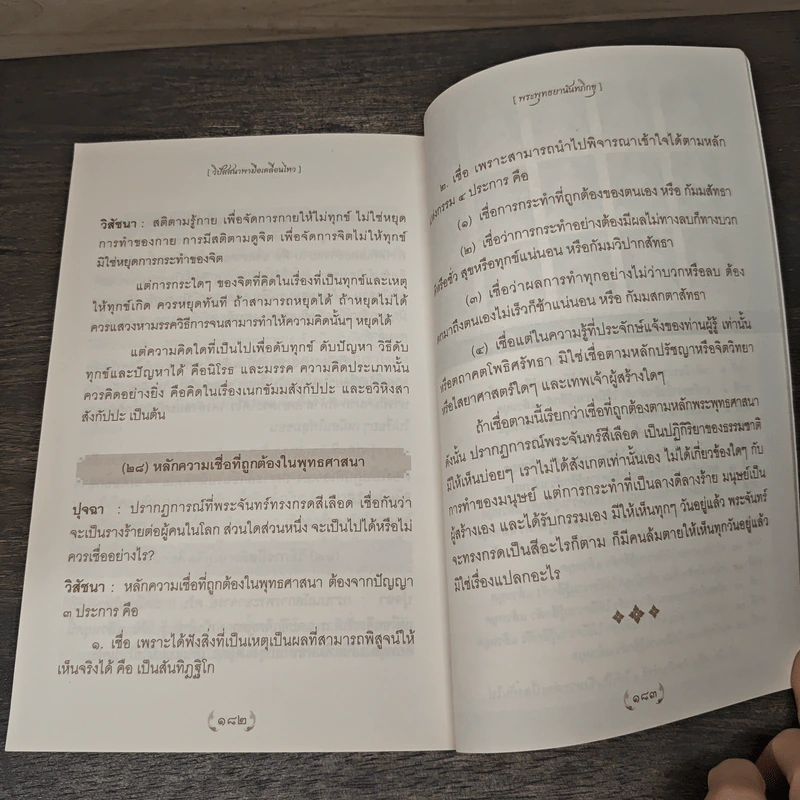 [ วิปัสสนาพามือเคลื่อนไหว ]
วิสัชนา : สติตามรู้กาย เพื่อจัดการกายให้ไม่ทุกข์ ไม่ใช่หยุด
การทำของกาย การมีสติตามดูจิต เพื่อจัดการจิตไม่ให้ทุกข์
มิใช่หยุดการกระทำของจิต
แต่การกระใดๆ ของจิตที่คิดในเรื่องที่เป็นทุกข์และเหตุ
ให้ทุกข์เกิด ควรหยุดทันที ถ้าสามารถหยุดได้ ถ้าหยุดไม่ได้
ควรแสวงหามรรควิธีการจนสามารถทำให้ความคิดนั้นๆ หยุดได้
แต่ความคิดใดที่เป็นไปเพื่อดับทุกข์ ดับปัญหา วิธีดับ
ทุกข์และปัญหาได้ คือนิโรธ และมรรค ความคิดประเภทนั้น
ควรคิดอย่างยิ่ง คือคิดในเรื่องเนกขัมมสังกัปปะ และอวิหิงสา
สังกัปปะ เป็นต้น
(๒๘) หลักความเชื่อที่ถูกต้องในพุทธศาสนา
ปุจฉา : ปรากฏการณ์ที่พระจันทร์ทรงกรดสีเลือด เชื่อกันว่า
จะเป็นรางร้ายต่อผู้คนในโลก ส่วนใดส่วนหนึ่ง จะเป็นไปได้หรือไม่
ควรเชื่ออย่างไร?
วิสัชนา : หลักความเชื่อที่ถูกต้องในพุทธศาสนา ต้องจากปัญญา
๓ ประการ คือ
๑. เชื่อ เพราะได้ฟังสิ่งที่เป็นเหตุเป็นผลที่สามารถพิสูจน์ให้
เห็นจริงได้ คือ เป็นสันทิฏฐิโก
๑๘๒
[ พระพุทธยานันทภิกขุ ]
๒. เชื่อ เพราะสามารถนำไปพิจารณาเข้าใจได้ตามหลัก
แห่งกรรม ๔ ประการ คือ
(๑) เชื่อการกระทำที่ถูกต้องของตนเอง หรือ กัมมสัทธา
(๒) เชื่อว่าการกระทำอย่างต้องมีผลไม่ทางลบก็ทางบวก
ดีหรือชั่ว สุขหรือทุกข์แน่นอน หรือกัมมวิปากสัทธา
(๓) เชื่อว่าผลการทำทุกอย่างไม่ว่าบวกหรือลบ ต้อง
ตกมาถึงตนเองไม่เร็วก็ช้าแน่นอน หรือ กัมมสกตาสัทธา
(๔) เชื่อแต่ในความรู้ที่ประจักษ์แจ้งของท่านผู้รู้ เท่านั้น
หรือตถาคตโพธิศรัทธา มิใช่เชื่อตามหลักปรัชญาหรือจิตวิทยา
หรือไสยาศาสตร์ใดๆ และเทพเจ้าผู้สร้างใดๆ
ถ้าเชื่อตามนี้เรียกว่าเชื่อที่ถูกต้องตามหลักพระพุทธศาสนา
ดังนั้น ปรากฏการณ์พระจันทร์สีเลือด เป็นปฏิกิริยาของธรรมชาติ
มีให้เห็นบ่อยๆ เราไม่ได้สังเกตเท่านั้นเอง ไม่ได้เกี่ยวข้องใดๆ กับ
การทำของมนุษย์ แต่การกระทำที่เป็นลางดีลางร้าย มนุษย์เป็น
ผู้สร้างเอง และได้รับกรรมเอง มีให้เห็นทุกๆ วันอยู่แล้ว พระจันทร์
จะทรงกรดเป็นสีอะไรก็ตาม ก็มีคนล้มตายให้เห็นทุกวันอยู่แล้ว
มิใช่เรื่องแปลกอะไร
๑๘๓